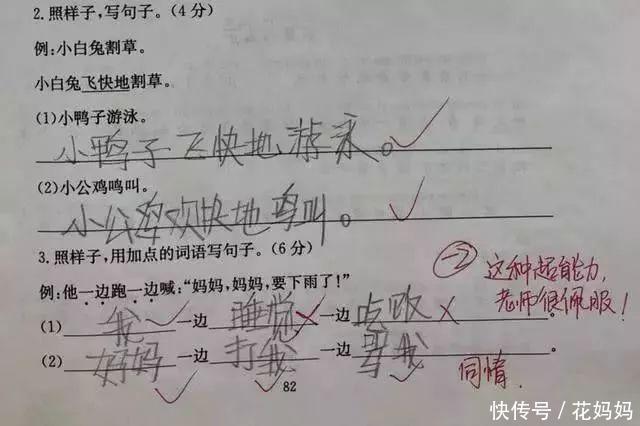 2.照样子,写句子。(4分)
例:小白兔割草。
小白兔飞快地割草。
(1)小鸭子游泳。
小鸭子飞快地游泳。
(2)小公鸡鸣叫。
小公鸡欢快地鸣叫。
3.照样子,用加点的词语写句子。(6分)
例:他一边跑一边喊:“妈妈,妈妈,要下雨了!”
(1) 我 一边 睡觉 一边 走路 。
(2) 妈妈 一边 打我 一边 骂我 。
-2 这种超能力,
老师很佩服!
同情.
82
快传号/花妈妈